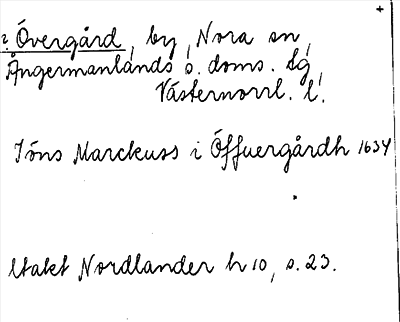 ? Övergård, by, Nora sn,
Ångermanlands s. doms. lg,
Västernorrl. l.
Jöns Marckuss i Öffuergårdh 1634
Utakt Nordlander h 10, s. 23.